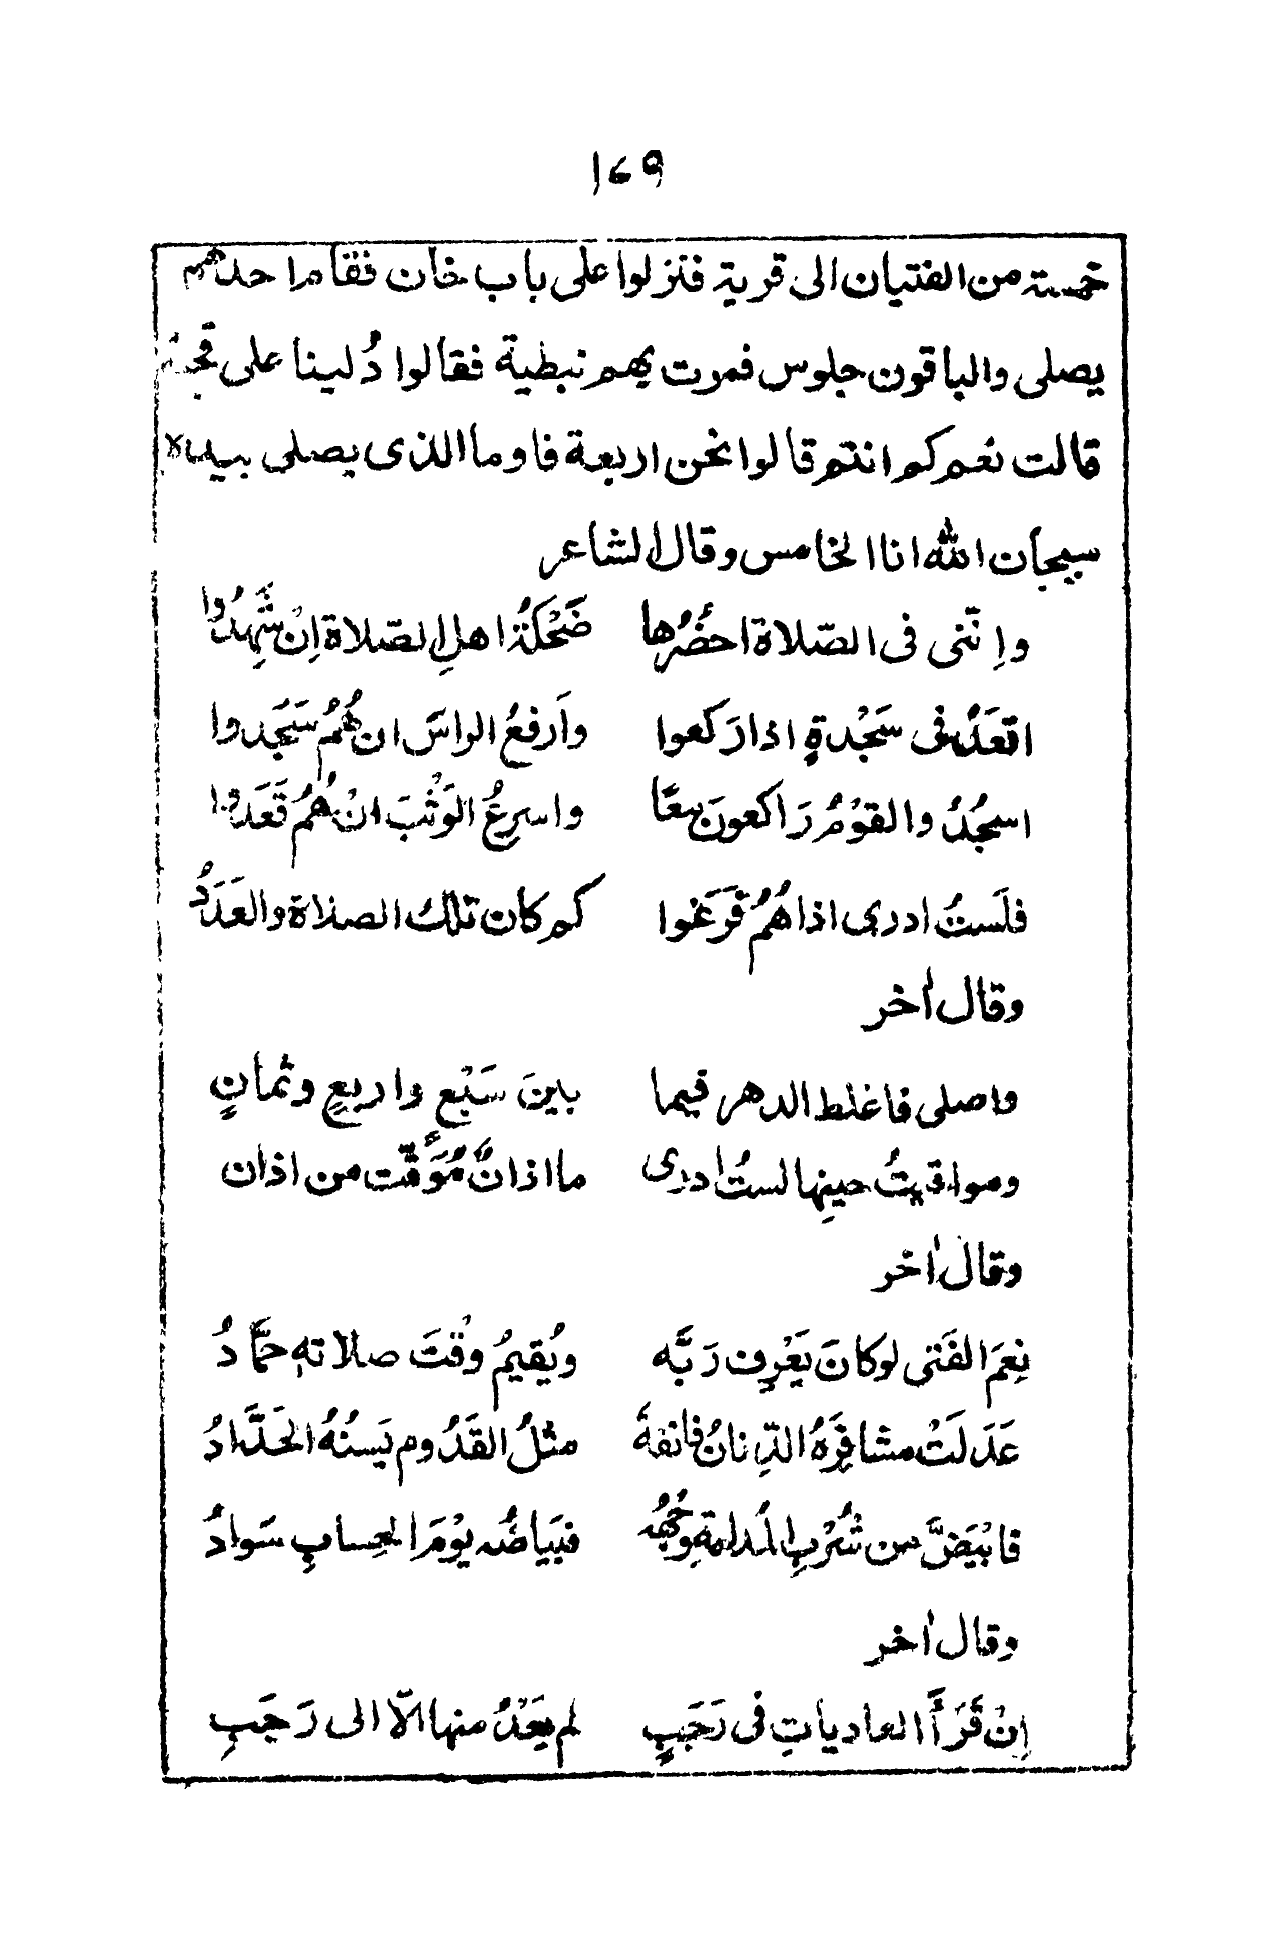 ١٦٩
خمسة من الفتيان الى قرية فنزلوا على باب خان فقام احدهم
يصلى والباقون جلوس فمرت بهم نبطية فقالوا دُلينا على قحبة
قالت نعم كم انتم قالوا نحن اربعة فاوما الذى يصلى بيده
سبحان الله انا الخامس وقال الشاعر
واِنّنى فى الصّلاة احضُرُها ضَحْكَةُ اهلِ الصّلاة اِنْ شَهِدُوا
اقعَدُ فى سَجْدةٍ اذا رَكعوا وآرفعُ الراسَ ان هُمُ سَجَدوا
اسجُدُ والقوْمُ رَاكعونَ معًا واسرِعُ الوَثْبَ انْ هُمُ قَعَدوا
فلَستُ ادرى اذا هُمُ فَرَغوا كم كان تلك الصلاة والعَدَدُ
وقال اٰخر
واصلى فاغلط الدهر فيما بينَ سَبْعٍ واربعٍ وثمانٍ
ومواقيتُ حينِها لستُ ادرى ما اذانٌ مُوَقّت من اذان
وقال اٰخر
نِعمَ الفَتى لوكانَ يَعْرِف رَبَّه ويُقيمُ وقْتَ صلاته حمَّادُ
عَدَلَتْ مشافِرَهُ الدِّنانُ فانفهُ مثلُ القَدُوم يَسنُّهُ الحَدَّادُ
فابْيَضَّ من شُرْبِ المُدامةِ وَجْهُه فبَياضُه يوْمَ الحِسابِ سَوادُ
وقال اٰخر
اِنْ قَرَأَ العادياتِ فى رَجَبٍ لم يَعْدُ منها الّا الى رَجَبِ